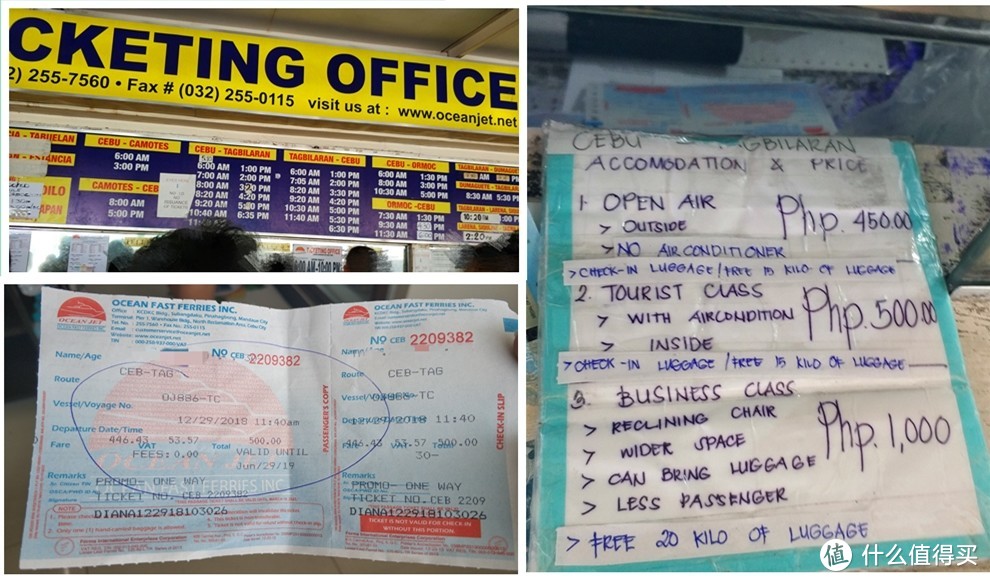 CKETING OFFICE
2) 255-7560 • Fax # (032) 255-0115 visit us at : www.oceanjet.net
CEBU - CAMOTES
6:00 AM
3:00 PM
CAMOTES - CEB
8:00 AM
5:00 PM
CEBU - TAGBILARAN
6:00 AM 1:00 PM
7:00 AM 2:00 PM
8:00 AM 3:20 PM
8:20 AM 4:20 PM
9:20 AM 5:40 PM
10:40 AM 6:35 PM
11:40 AM
TAGBILARAN - CEBU
6:00 AM 1:00 PM
7:05 AM 2:00 PM
8:20 AM 3:30 PM
9:20 AM 4:20 PM
10:40 AM 5:30 PM
11:40 AM 6:30 PM
CEBU - ORMOC
6:00 AM 1:30 PM
8:00 AM 3:30 PM
10:30 AM 5:30 PM
ORMOC - CEBU
7:30 AM 1:30 PM
9:30 AM
11:30 AM
OCEAN JET
OCEAN FAST FERRIES INC.
Name/Age
Nº CEB 2209382
Route
CEB-TAG
Vessel/Voyage No.
OJ886-TC
12/29/2018 11:40am
Departure Date/Time
446.43 53.57 500.00
Fare VAT Total
FEES: 0.00 VALID UNTIL
Jun/29/19
Remarks
PROMO- ONE WAY
TICKET NO. CEB 2209382
DIANA122918103026
NOTE
PASSENGER'S COPY
OCEAN FAST FERRIES INC.
Nº CEB 2209382
Route
CEB-TAG
Vessel/Voyage No.
OJ886-TC
12/29/2018 11:40
Departure Date/Time
446.43 53.57 500.00
30-
Remarks
PROMO- ONE WAY
TICKET NO. CEB 2209
DIANA122918103026
TICKET IS NOT VALID FOR CHECK-IN
WITHOUT THIS PORTION.
CHECK-IN SLIP
CEBU TAGBILARAN
ACCOMODATION & PRICE
1. OPEN AIR Php. 450.00
> OUTSIDE
> NO AIRCONDITIONER
> CHECK-IN LUGGAGE / FREE 15 KILO OF LUGGAGE
2. TOURIST CLASS Php. 500.00
> WITH AIRCONDITION
> INSIDE
> CHECK-IN LUGGAGE / FREE 15 KILO OF LUGGAGE
3. BUSINESS CLASS Php. 1,000
> RECLINING CHAIR
> WIDER SPACE
> CAN BRING LUGGAGE
> LESS PASSENGER
> FREE 20 KILO OF LUGGAGE
值 什么值得买